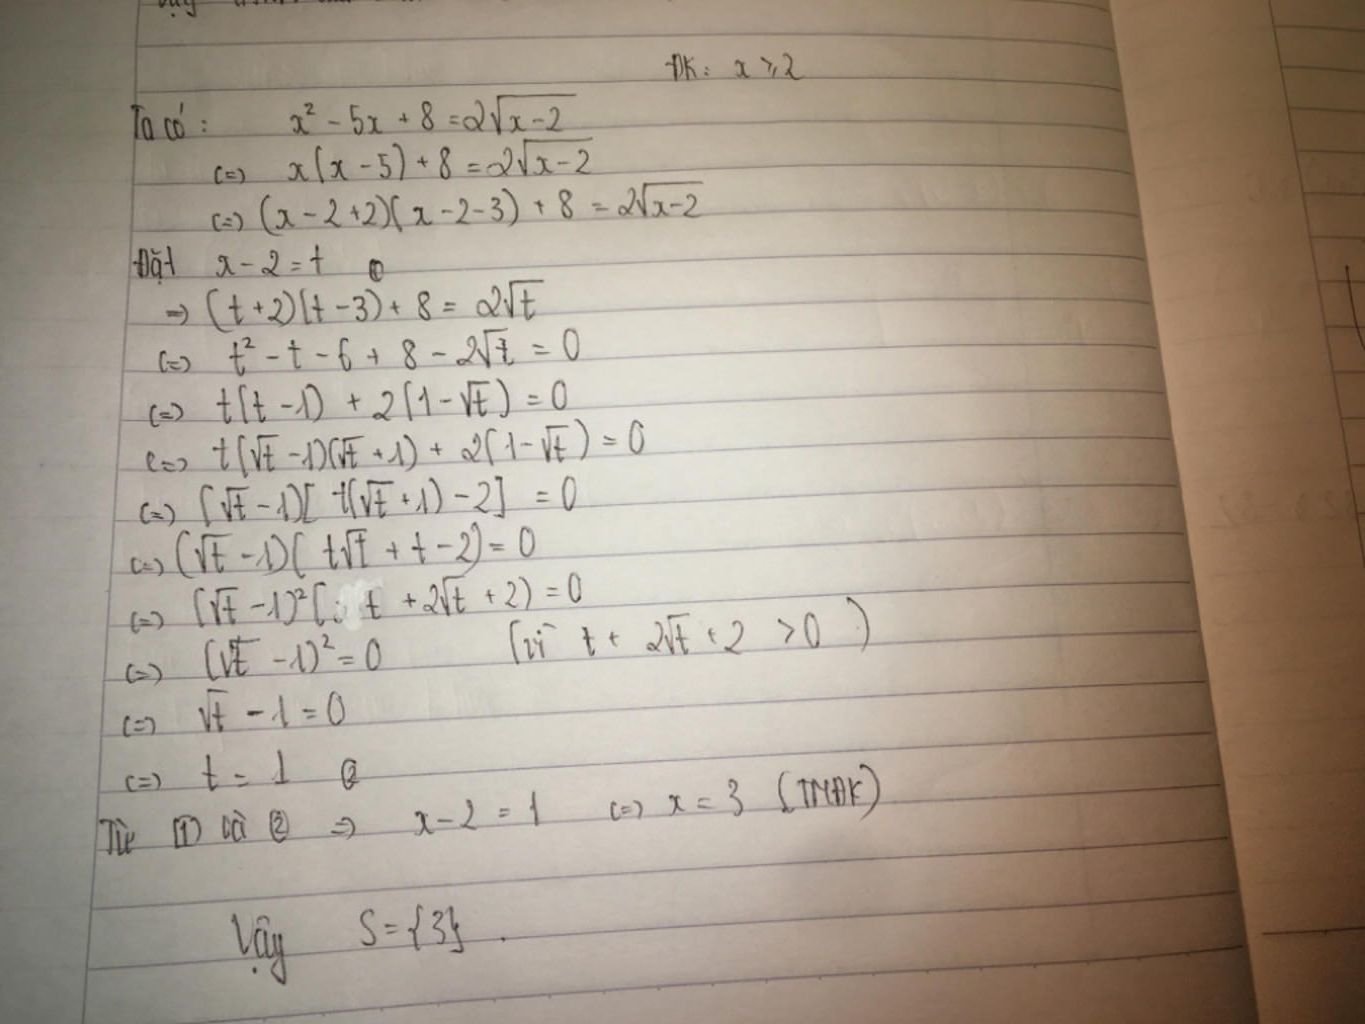 ĐK: x ≥ 2
Ta có: x² - 5x + 8 = 2√(x-2)
(=) x(x - 5) + 8 = 2√(x-2)
(=) (x - 2 + 2)(x - 2 - 3) + 8 = 2√(x-2)
Đặt x - 2 = t ①
=> (t + 2)(t - 3) + 8 = 2√t
(=) t² - t - 6 + 8 - 2√t = 0
(=) t(t - 1) + 2(1 - √t) = 0
(=) t(√t - 1)(√t + 1) + 2(1 - √t) = 0
(=) (√t - 1)[t(√t + 1) - 2] = 0
(=) (√t - 1)(t√t + t - 2) = 0
(=) (√t - 1)²(t + 2√t + 2) = 0
(=) (√t - 1)² = 0 (vì t + 2√t + 2 > 0)
(=) √t - 1 = 0
(=) t = 1 ②
Từ ① và ② => x - 2 = 1 (=) x = 3 (TMĐK)
Vậy S = {3}.